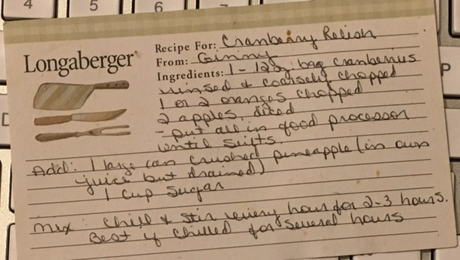 4 5 6
Longaberger®
Recipe For: Cranberry Relish
From: Ginny
Ingredients: 1 - 12 oz. bag cranberries
rinsed & coarsely chopped
1 or 2 oranges chopped
2 apples, diced
- put all in food processor
until
Add: 1 large can crushed pineapple (in own
juice but drained)
1 cup sugar
Mix: Chill & stir every hour for 2-3 hours.
Best if chilled for several hours